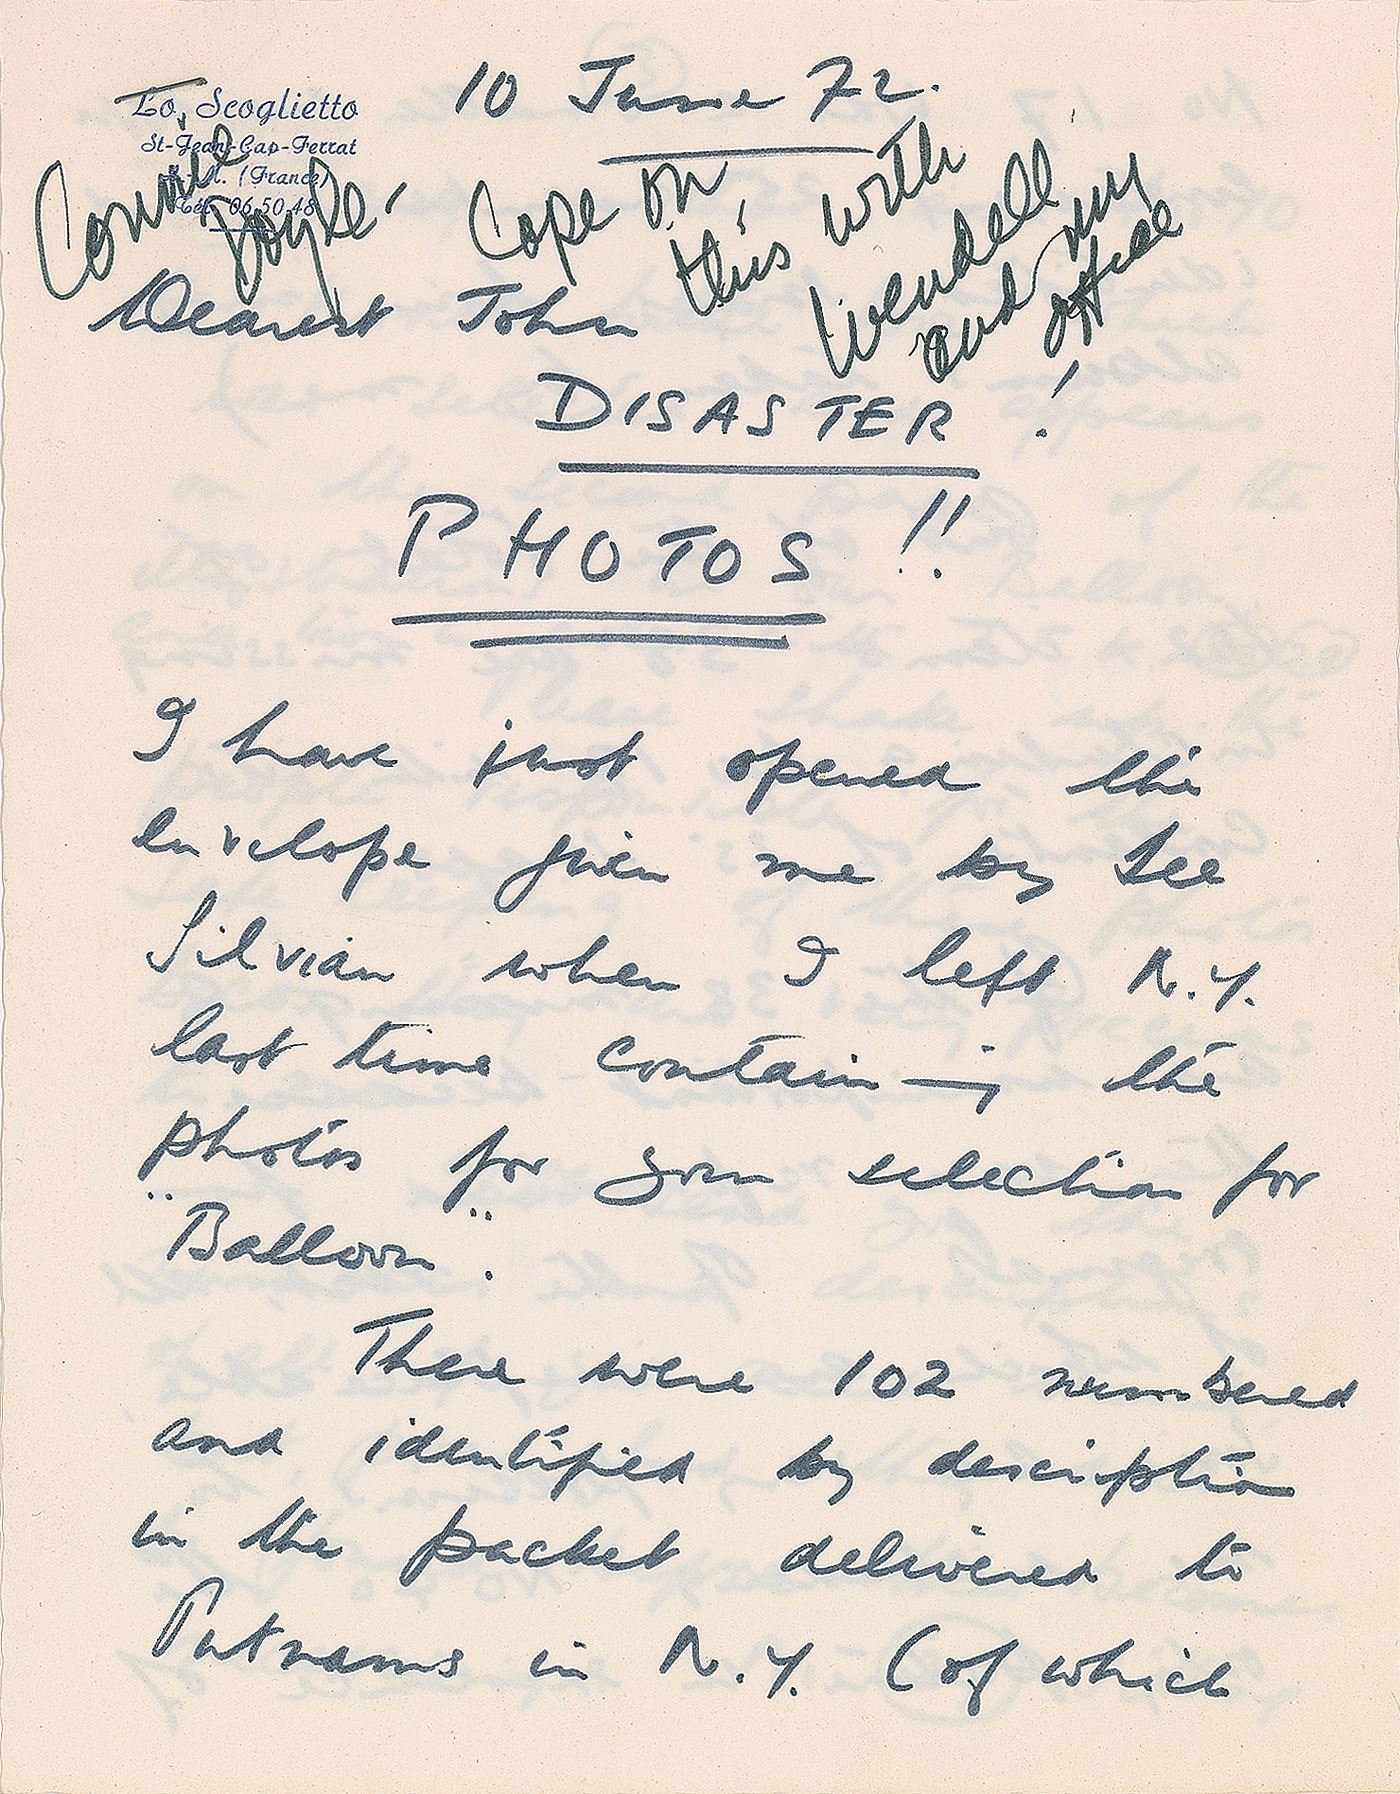 Lo Scoglietto
St-Jean-Cap-Ferrat
A.-M. (France)
Tél. 06.50.48
10 June 72.
Connie
Boyle,
Cope on
this, with
Wendell
and my
office
Dearest John
DISASTER !
PHOTOS !!
I have just opened the
envelope given me by Lee
Silvian when I left N.Y.
last time containing the
photos for your selection for
"Balloon".
There were 102 numbered
and identified by description
in the packet delivered to
Putnams in N.Y. (of which